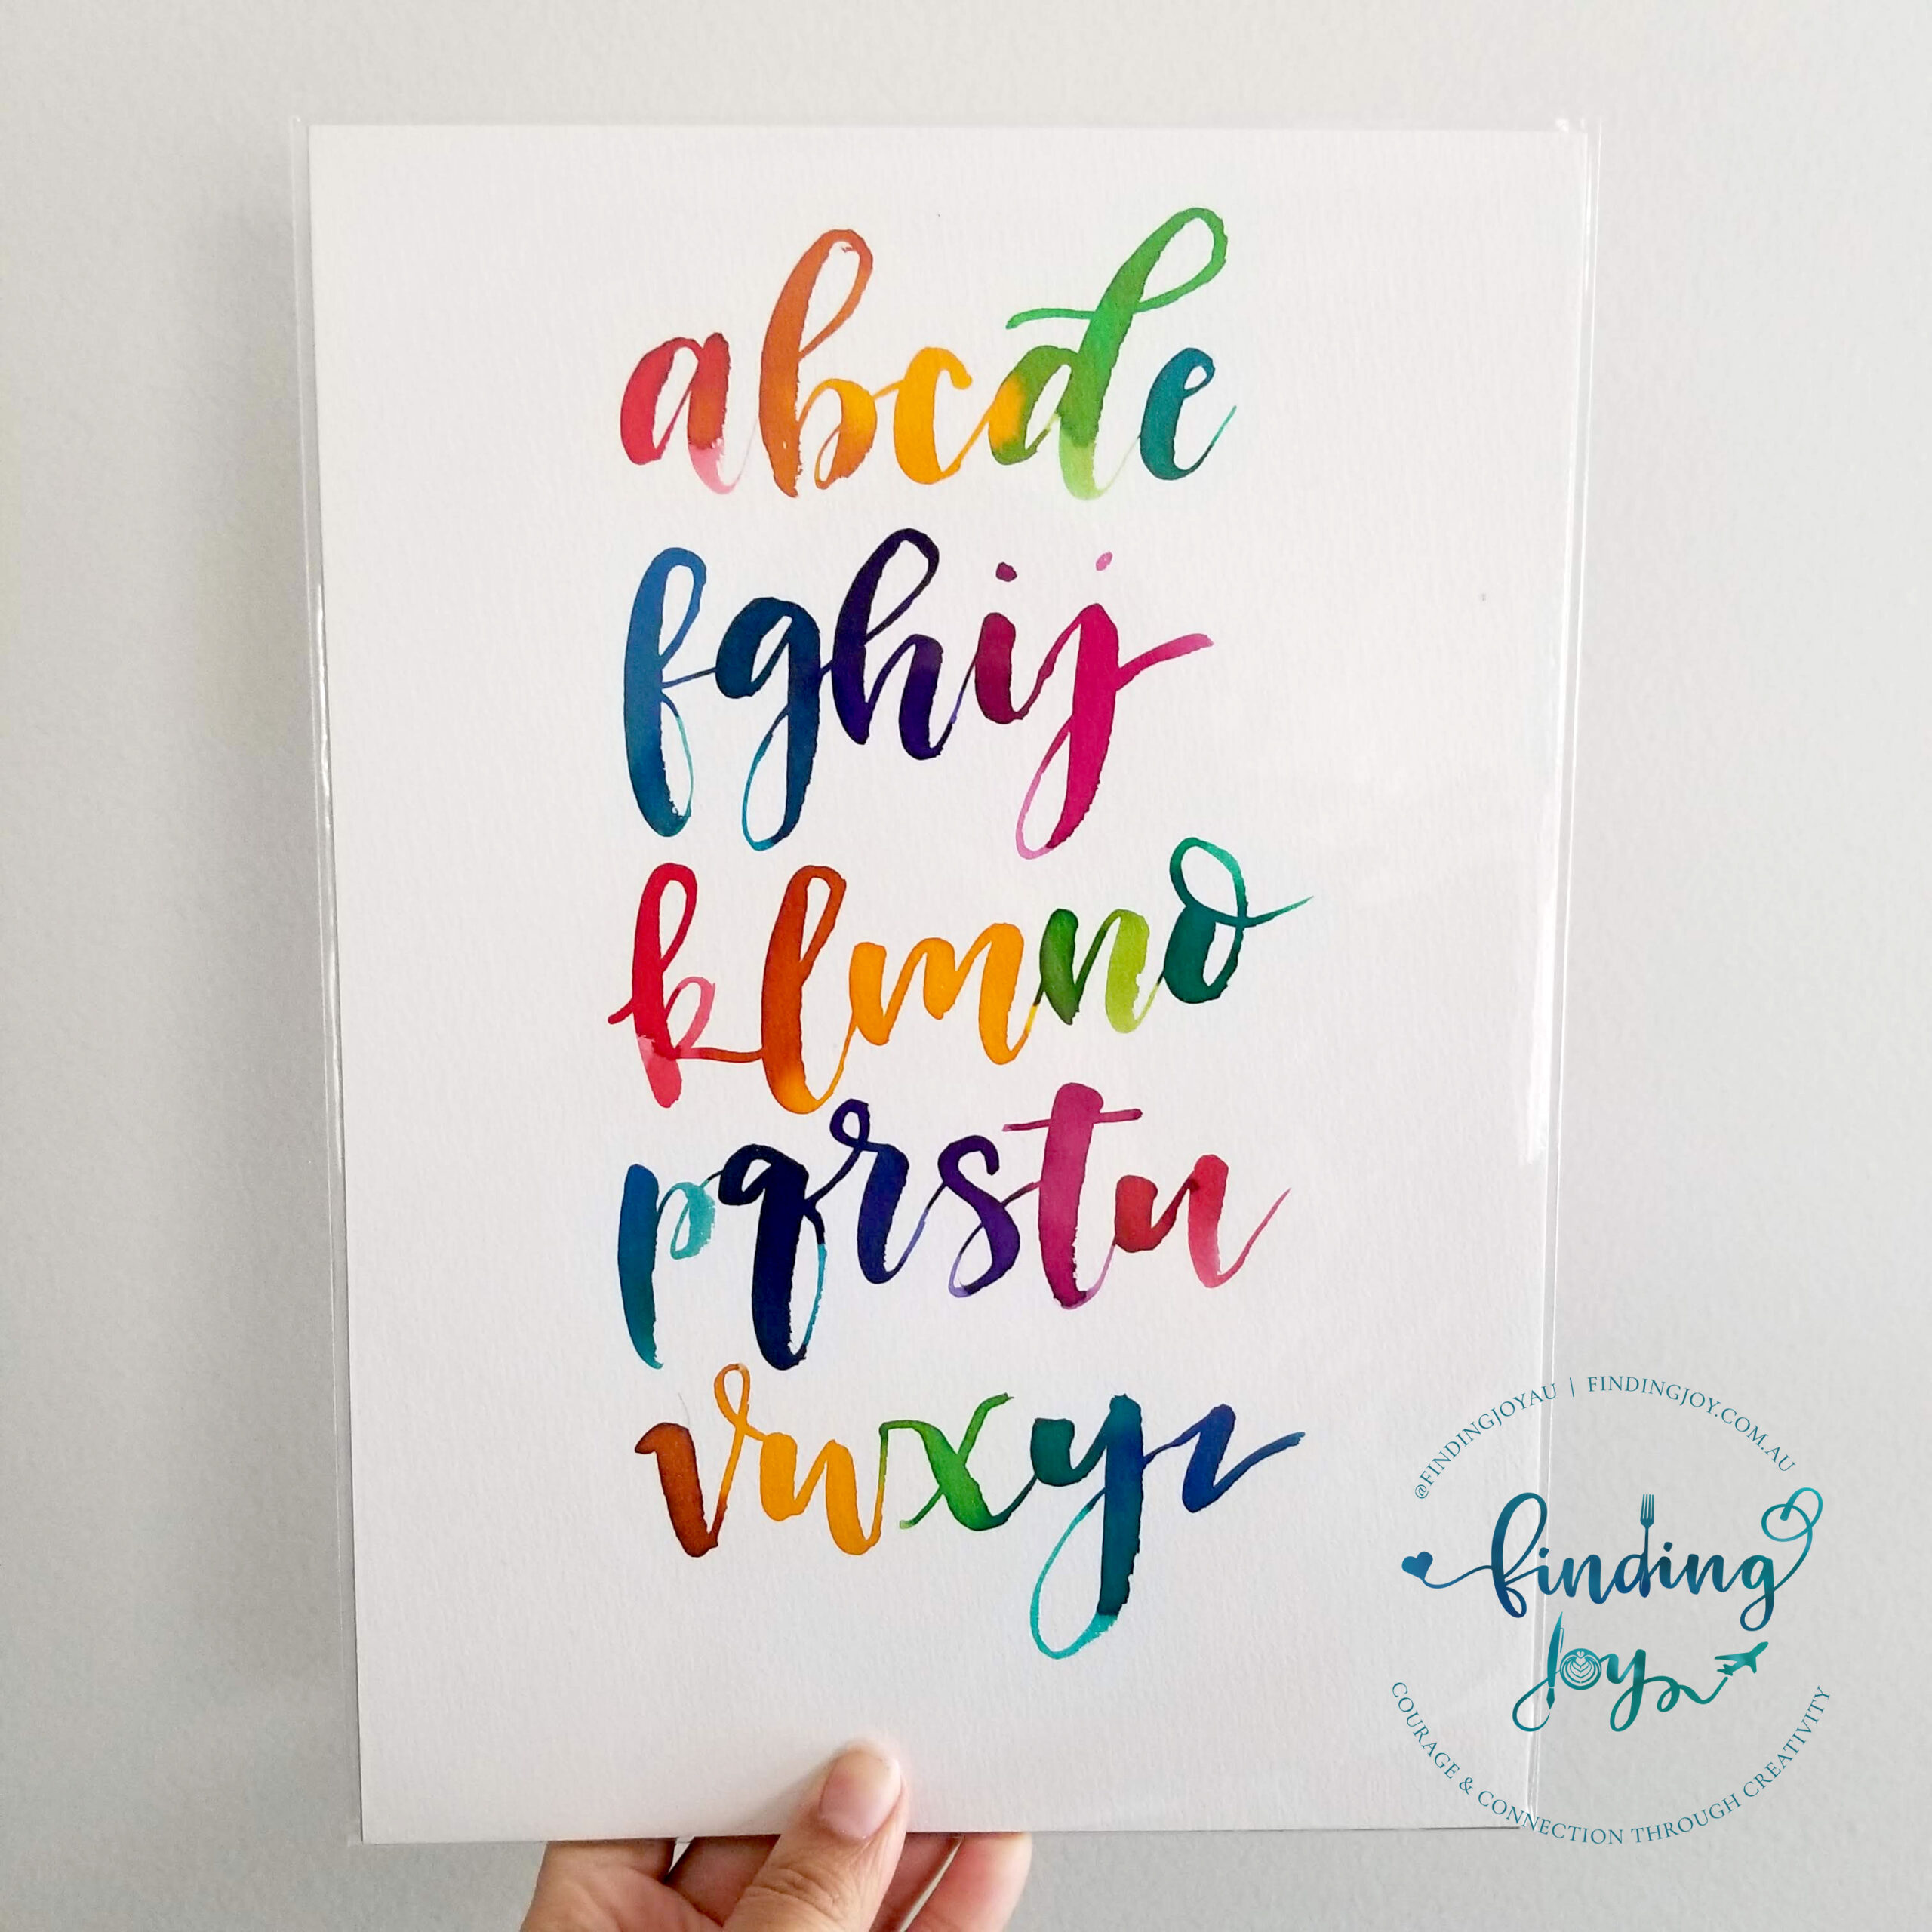 abcde
fghij
klmno
pqrstu
vwxyz
@FINDINGJOYAU | FINDINGJOY.COM.AU
finding
joy
COURAGE & CONNECTION THROUGH CREATIVITY